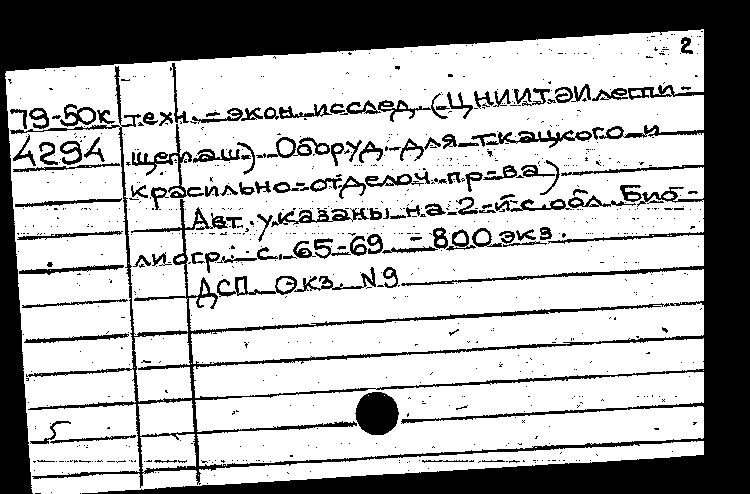 2
79-50к техн.-экон. исслед. (ЦНИИТЭИлегпи-
4294 щемаш). Оборуд. для ткацкого и
красильно-отделоч. пр-ва)
Авт. указаны на 2-й с. обл. Биб-
лиогр.: с. 65-69. - 800 экз.
ДСП. Экз. N9
5